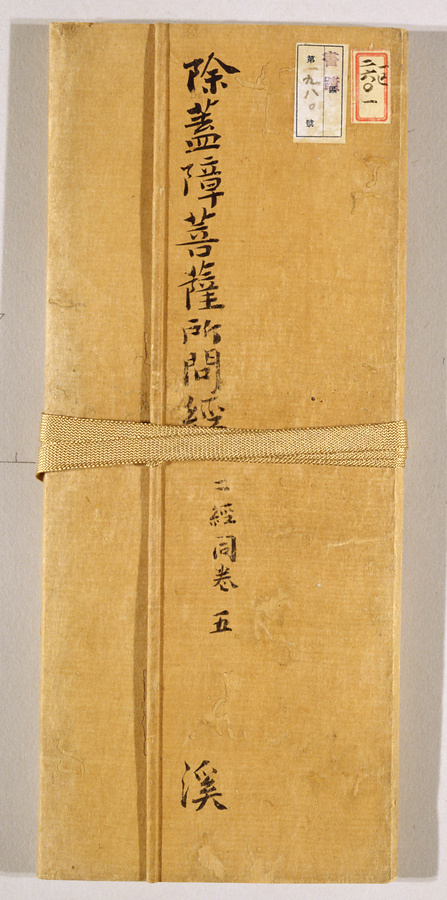 二六〇一
第一九八〇號
除蓋障菩薩所問經
二經同卷 五
溪